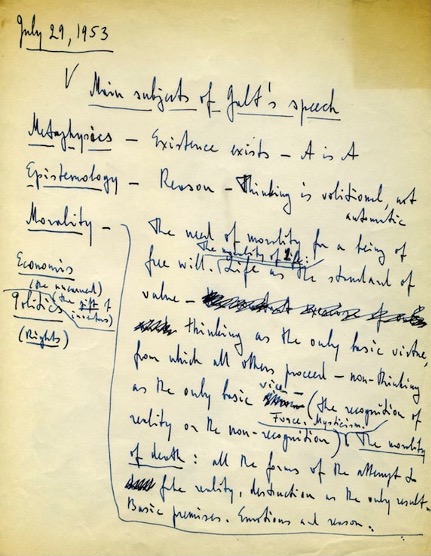 July 29, 1953
Main subjects of Galt's speech
Metaphysics – Existence exists – A is A
Epistemology – Reason – Thinking is volitional, not
automatic
Morality – The need of morality for a being of
free will. The morality of life: Life as the standard of
value –
thinking as the only basic virtue,
from which all others proceed – non-thinking
as the only basic vice – (the recognition of
reality or the non-recognition) Force, Mysticism. The morality
of death: all the forms of the attempt to
fake reality, destruction as the only result.
Basic premises. Emotions and reason.
Economics
(the unearned)
(the gift of
inventors)
Politics
(Rights)